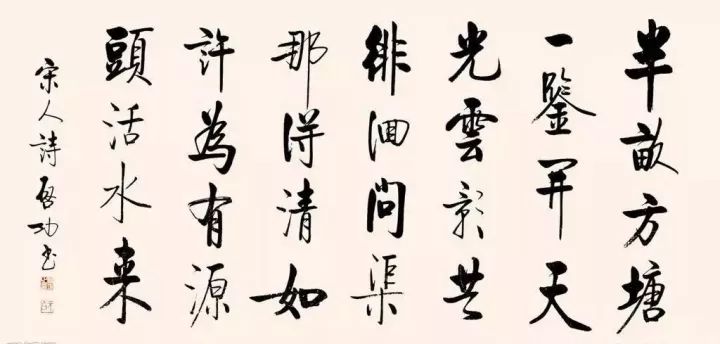 半畝方塘
一鑒開天
光雲影共
徘徊問渠
那得清如
許為有源
頭活水来
宋人詩啓功書